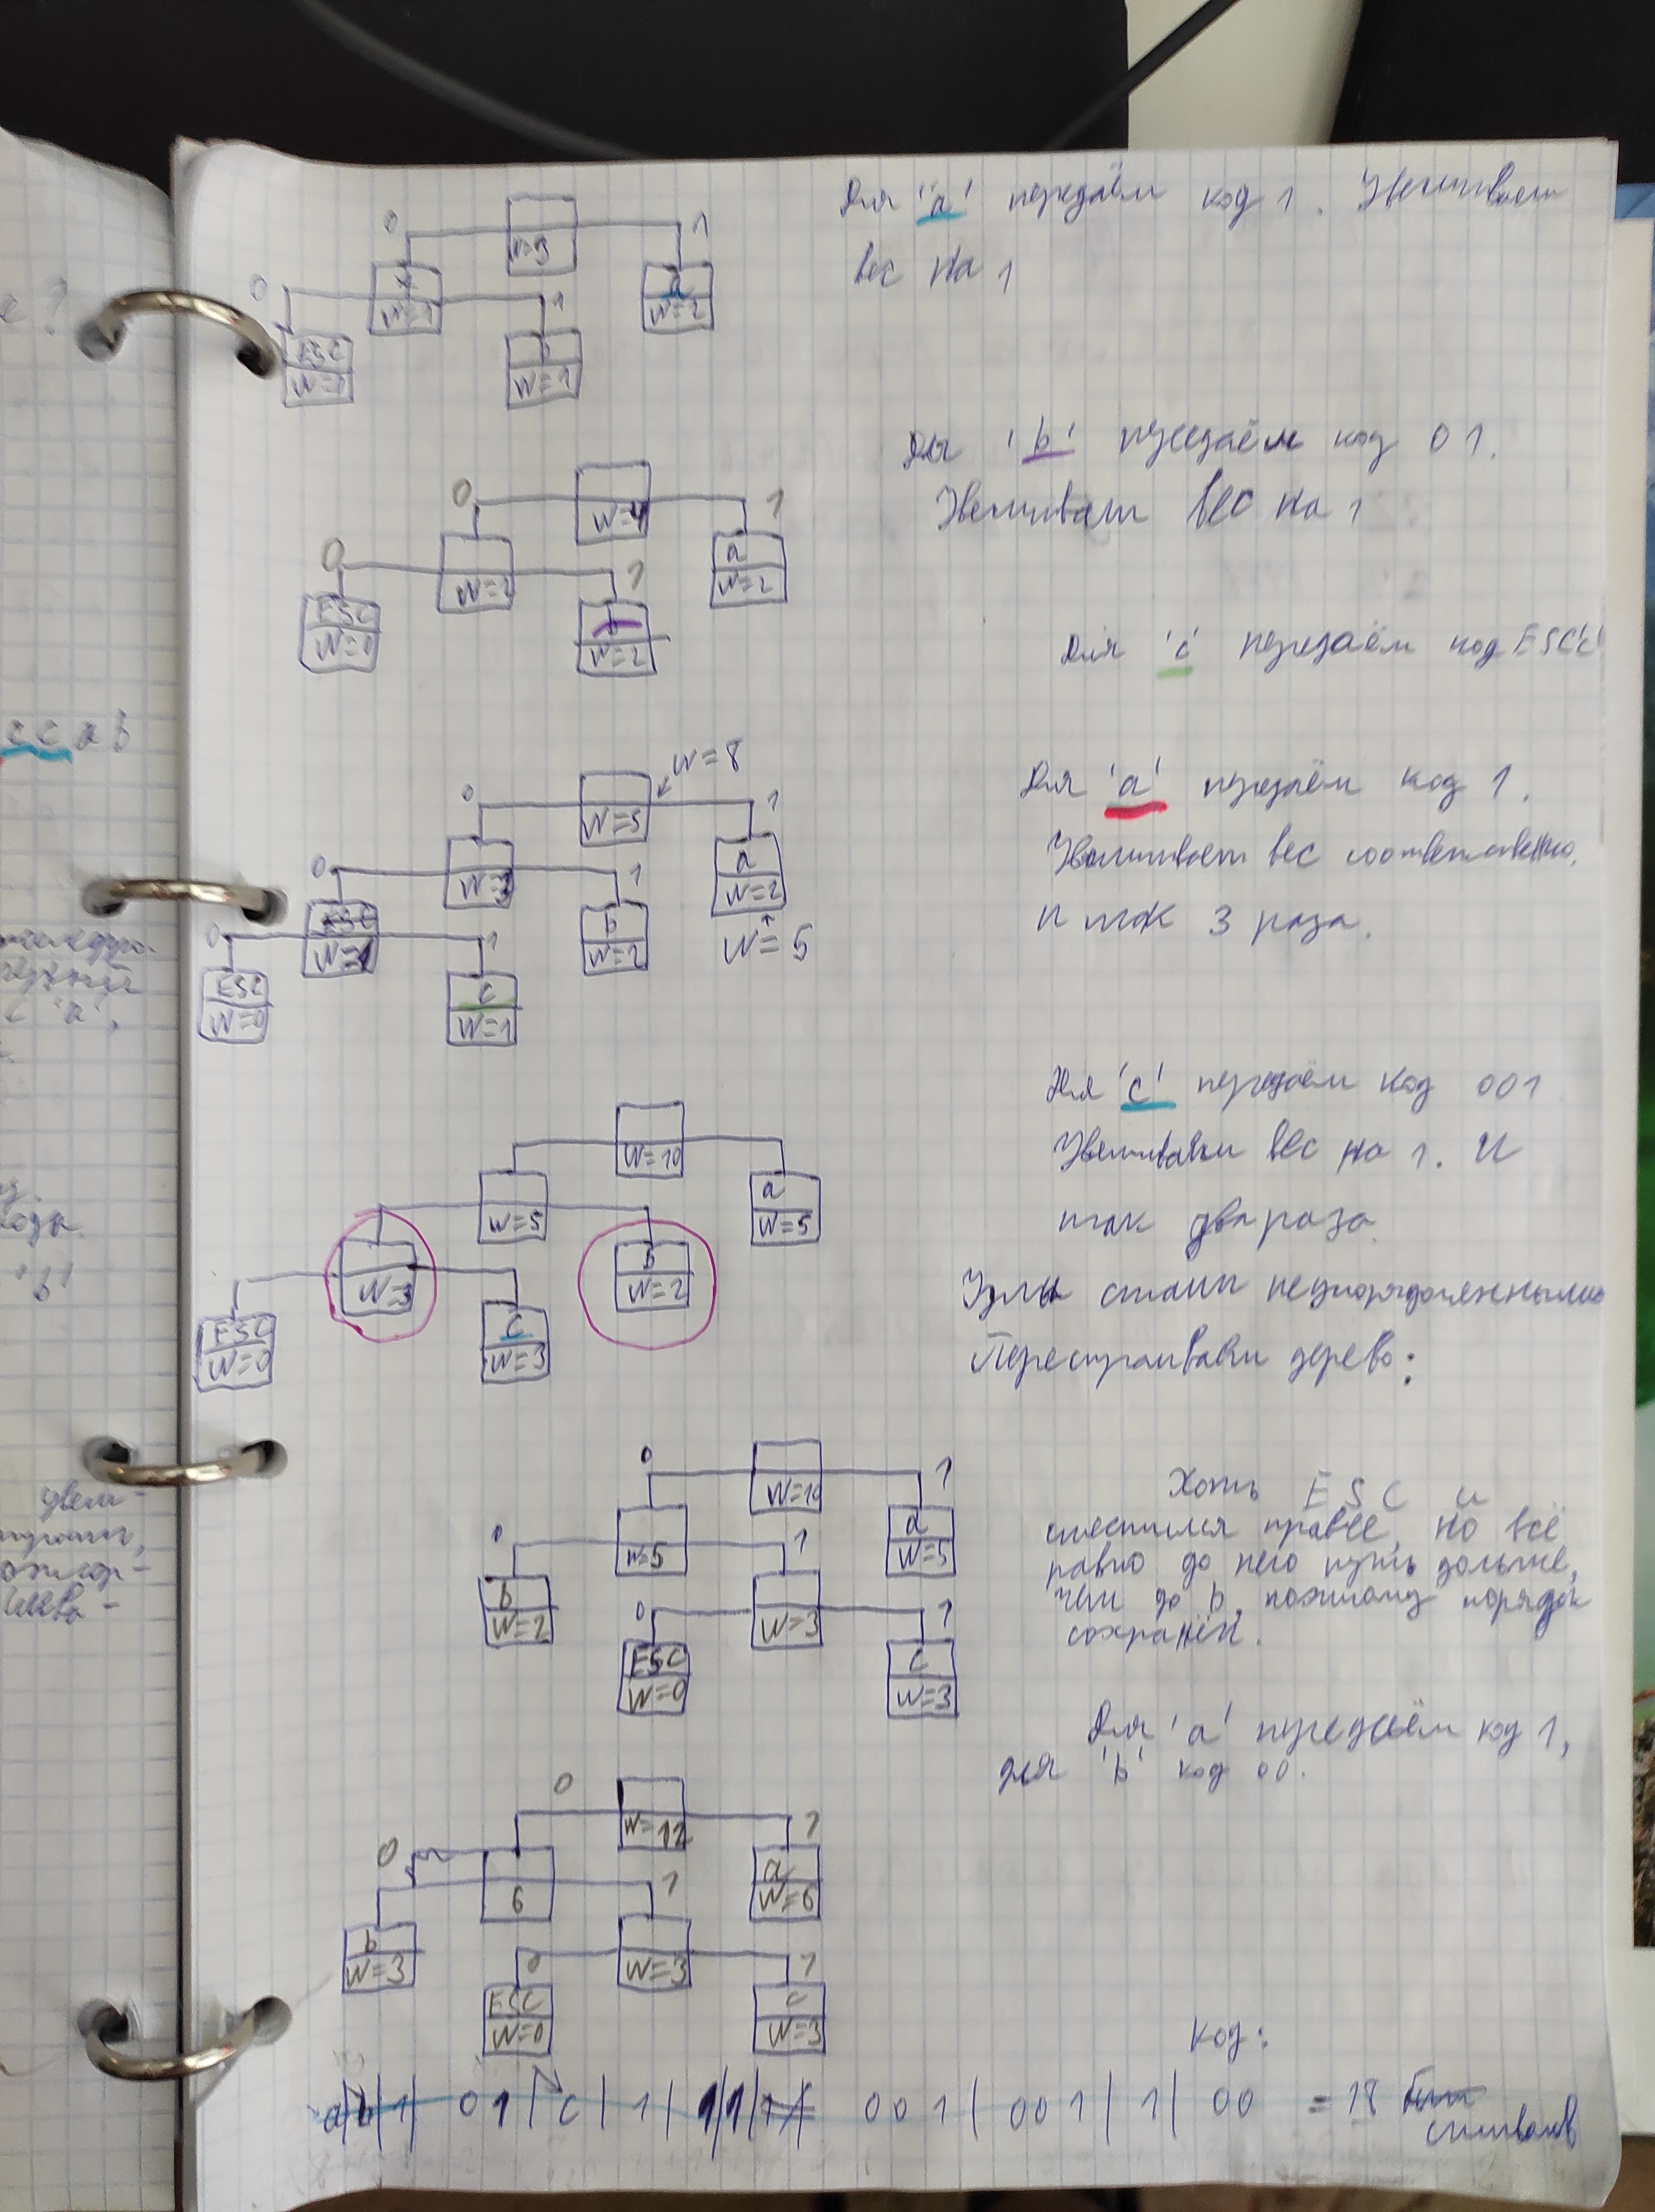 Для 'a' передаём код 1. Увеличиваем
вес на 1
0
1
W=3
0
W=1
1
a
W=2
ESC
W=0
b
W=1
Для 'b' передаём код 01.
Увеличиваем вес на 1
0
W=4
1
0
W=2
1
a
W=2
ESC
W=0
b
W=2
Для 'c' передаём код ESC'c'
W=8
0
W=5
1
0
W=3
1
a
W=2
W=5
0
ESC
W=1
1
b
W=2
ESC
W=0
c
W=1
Для 'a' передаём код 1.
Увеличиваем вес соответственно,
и так 3 раза.
Для 'c' передаём код 001
Увеличиваем вес на 1. И
так два раза.
Узлы стали неупорядоченными
Перестраиваем дерево:
W=10
W=5
a
W=5
W=3
b
W=2
ESC
W=0
c
W=3
0
W=10
1
0
W=5
1
a
W=5
b
W=2
0
W=3
1
ESC
W=0
c
W=3
Хоть ESC и
сместился правее, но всё
равно до него путь дольше,
чем до b, поэтому порядок
сохранён.
Для 'a' передаём код 1,
для 'b' код 00.
0
W=12
1
0
6
1
a
W=6
b
W=3
0
W=3
1
ESC
W=0
c
W=3
код:
a|b|1| 01| c| 1| 1|1| 001| 001| 1| 00 = 18
символов
ccab
'a',
'b'